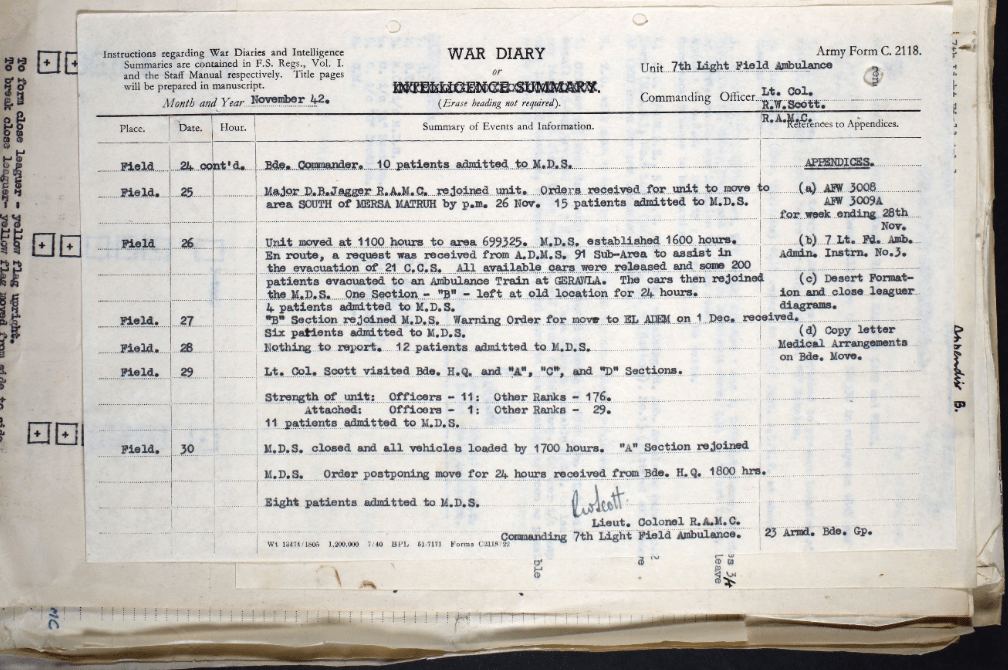 Instructions regarding War Diaries and Intelligence
Summaries are contained in F.S. Regs., Vol. I.
and the Staff Manual respectively. Title pages
will be prepared in manuscript.
Month and Year November 42.
WAR DIARY
or
INTELLIGENCE SUMMARY.
(Erase heading not required).
Army Form C. 2118.
Unit 7th Light Field Ambulance
Commanding Officer Lt. Col.
R.W.Scott.
R.A.M.C.
Place. Date. Hour. Summary of Events and Information. References to Appendices.
Field 24 cont'd. Bde. Commander. 10 patients admitted to M.D.S.
Field. 25 Major D.R.Jagger R.A.M.C. rejoined unit. Orders received for unit to move to
area SOUTH of MERSA MATRUH by p.m. 26 Nov. 15 patients admitted to M.D.S.
Field 26 Unit moved at 1100 hours to area 699325. M.D.S. established 1600 hours.
En route, a request was received from A.D.M.S. 91 Sub-Area to assist in
the evacuation of 21 C.C.S. All available cars were released and some 200
patients evacuated to an Ambulance Train at GERAWLA. The cars then rejoined
the M.D.S. One Section - "B" - left at old location for 24 hours.
4 patients admitted to M.D.S.
Field. 27 "B" Section rejoined M.D.S. Warning Order for move to EL ADEM on 1 Dec. received.
Six patients admitted to M.D.S.
Field. 28 Nothing to report. 12 patients admitted to M.D.S.
Field. 29 Lt. Col. Scott visited Bde. H.Q. and "A", "C", and "D" Sections.
Strength of unit: Officers - 11: Other Ranks - 176.
Attached: Officers - 1: Other Ranks - 29.
11 patients admitted to M.D.S.
Field. 30 M.D.S. closed and all vehicles loaded by 1700 hours. "A" Section rejoined
M.D.S. Order postponing move for 24 hours received from Bde. H.Q. 1800 hrs.
Eight patients admitted to M.D.S.
RWScott.
Lieut. Colonel R.A.M.C.
Commanding 7th Light Field Ambulance.
23 Armd. Bde. Gp.
APPENDICES.
(a) AFW 3008
AFW 3009A
for week ending 28th
Nov.
(b) 7 Lt. Fd. Amb.
Admin. Instrn. No.3.
(c) Desert Format-
ion and close leaguer
diagrams.
(d) Copy letter
Medical Arrangements
on Bde. Move.
Wt 13474/1805 1,200,000 7/40 BPL 51-7171 Forms C2118/22
To form close leaguer - yellow flag upright.
To break close leaguer- yellow flag moved from side to side.
Appendix B.
ble
re
2
leave
34
MC